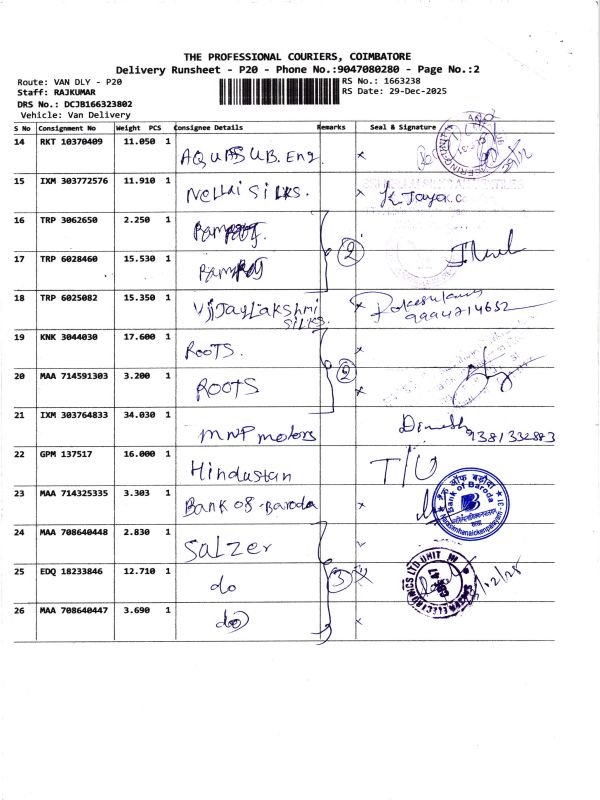 THE PROFESSIONAL COURIERS, COIMBATORE
Delivery Runsheet - P20 - Phone No.:9047080280 - Page No.:2
Route: VAN DLY - P20
RS No.: 1663238
Staff: RAJKUMAR
RS Date: 29-Dec-2025
DRS No.: DCJB166323802
Vehicle: Van Delivery
S No Consignment No Weight PCS Consignee Details Remarks Seal & Signature
14 RKT 10370409 11.050 1 Eng. x
15 IXM 303772576 11.910 1 Nellai SILKS. x K. Jaya
16 TRP 3062650 2.250 1
2
17 TRP 6028460 15.530 1
18 TRP 6025082 15.350 1 VijayLakshmi SILKS. x 9994714652
19 KNK 3044030 17.600 1 ROOTS. x
2
20 MAA 714591303 3.200 1 ROOTS x
21 IXM 303764833 34.030 1 MNP motors Dinesh 9381332883
22 GPM 137517 16.000 1 Hindustan T/U
23 MAA 714325335 3.303 1 BANK OF-Baroda x
बैंक ऑफ़ बड़ौदा
Bank of Baroda
24 MAA 708640448 2.830 1 Salzer
25 EDQ 18233846 12.710 1 do 3 x
ELECTRONICS LTD UNIT III
26 MAA 708640447 3.690 1 do x